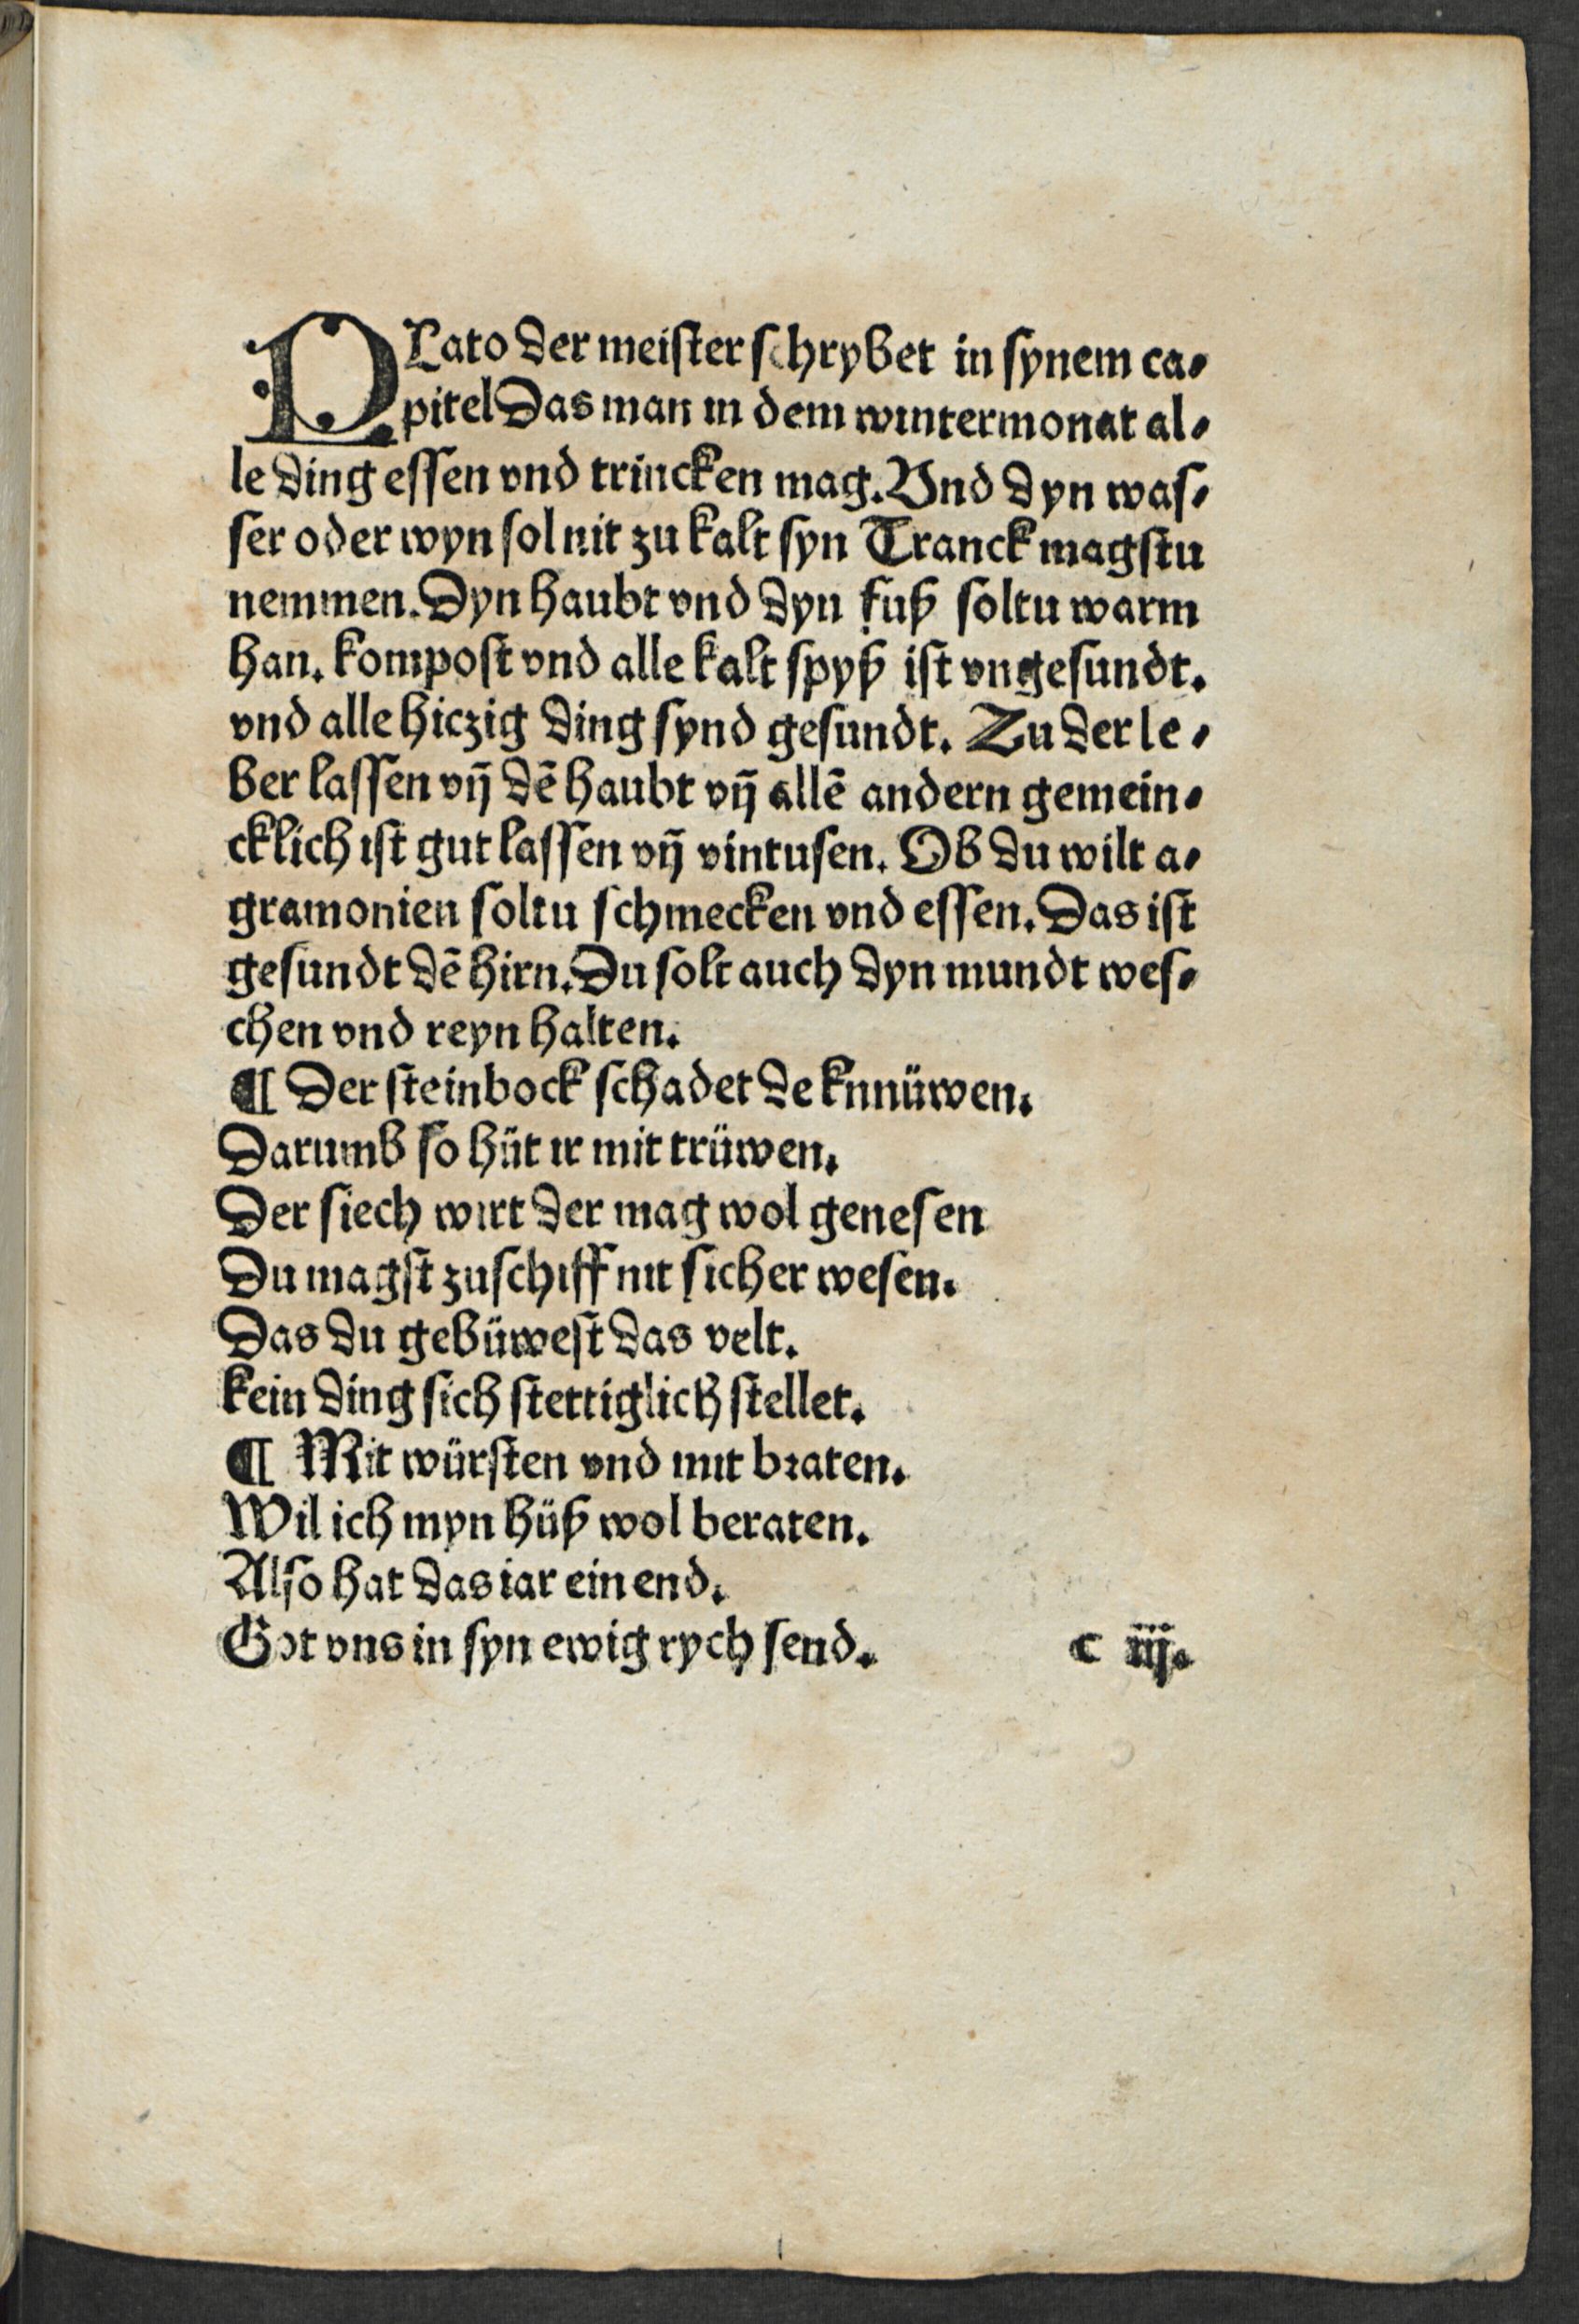 PLato der meister schrybet in synem ca⸗
pitel Das man in dem wintermonat al⸗
le ding essen vnd trincken mag. Vnd dyn was⸗
ser oder wyn sol nit zu kalt syn Tranck magstu
nemmen. Dyn haubt vnd dyn fuß soltu warm
han. kompost vnd alle kalt spyß ist vngesundt.
vnd alle hiczig ding synd gesundt. Zu der le⸗
ber lassen vñ dē haubt vñ allē andern gemein⸗
cklich ist gut lassen vñ vintusen. Ob du wilt a⸗
gramonien soltu schmecken vnd essen. Das ist
gesundt dē hirn. Du solt auch dyn mundt wes⸗
chen vnd reyn halten.
¶ Der steinbock schadet de knnüwen.
Darumb so hüt ir mit trüwen.
Der siech wirt der mag wol genesen
Du magst zu schiff nit sicher wesen.
Das du gebüwest das velt.
kein ding sich stettiglich stellet.
¶ Mit würsten vnd mit braten.
Wil ich myn hüß wol beraten.
Also hat das iar ein end.
Got vns in syn ewig rych send. c iij.